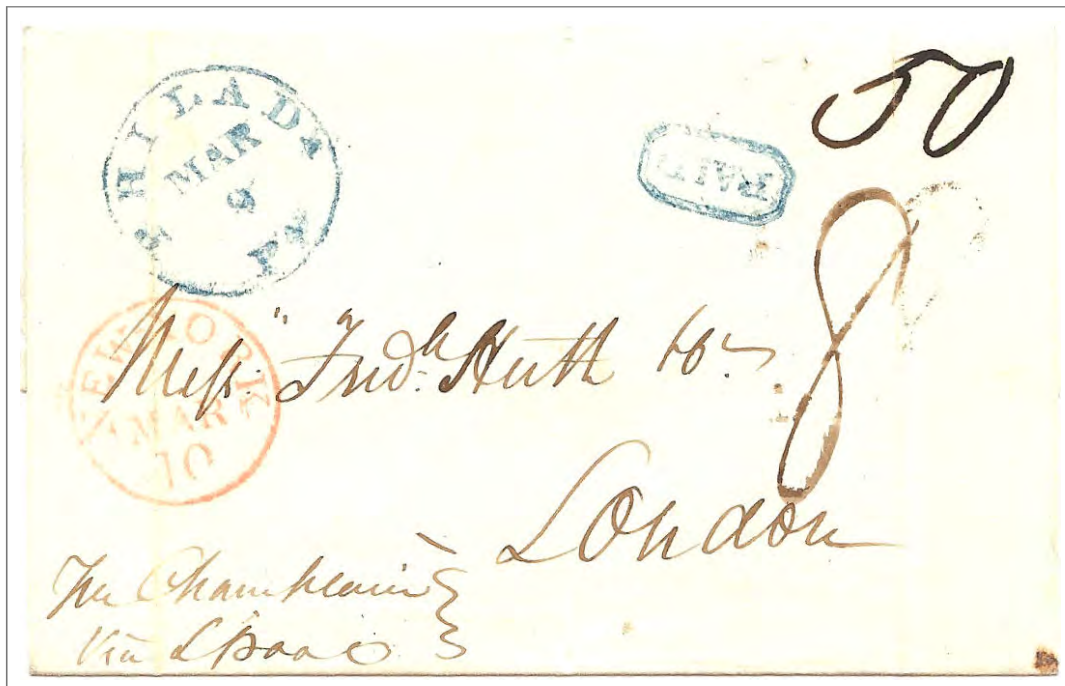 PHILADA PA
MAR
9
PAID
50
8
NEW YORK
MAR
10
Mess.rs Fred.k Huth Co.
London
Per Champlain
Via L'Pool